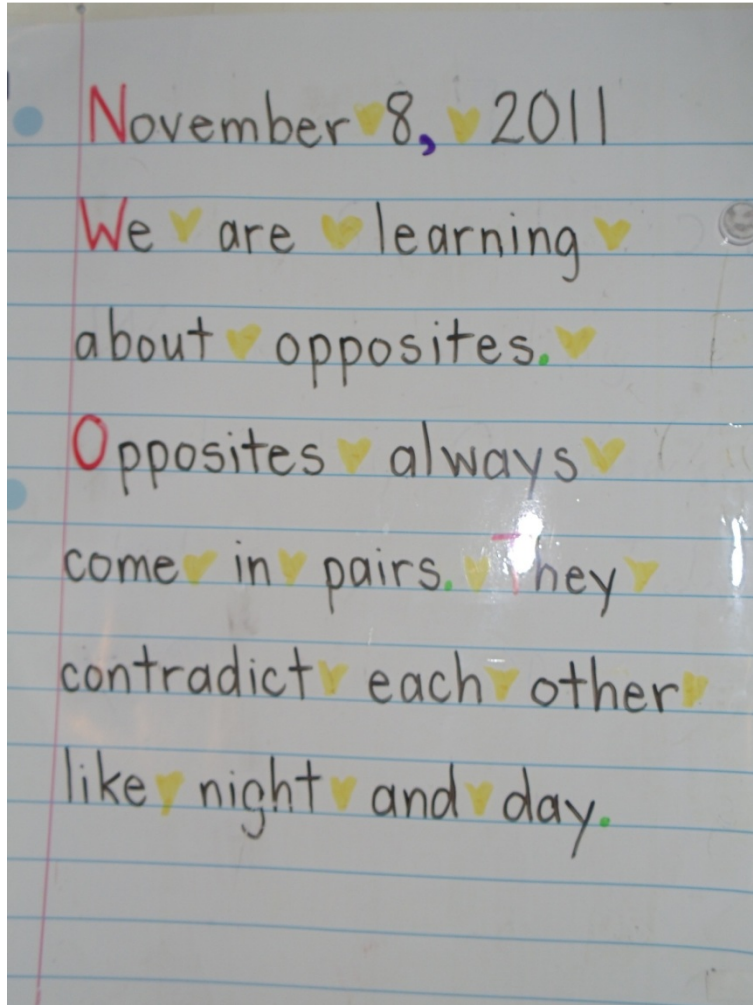 November 8, 2011
We are learning
about opposites.
Opposites always
come in pairs. They
contradict each other
like night and day.